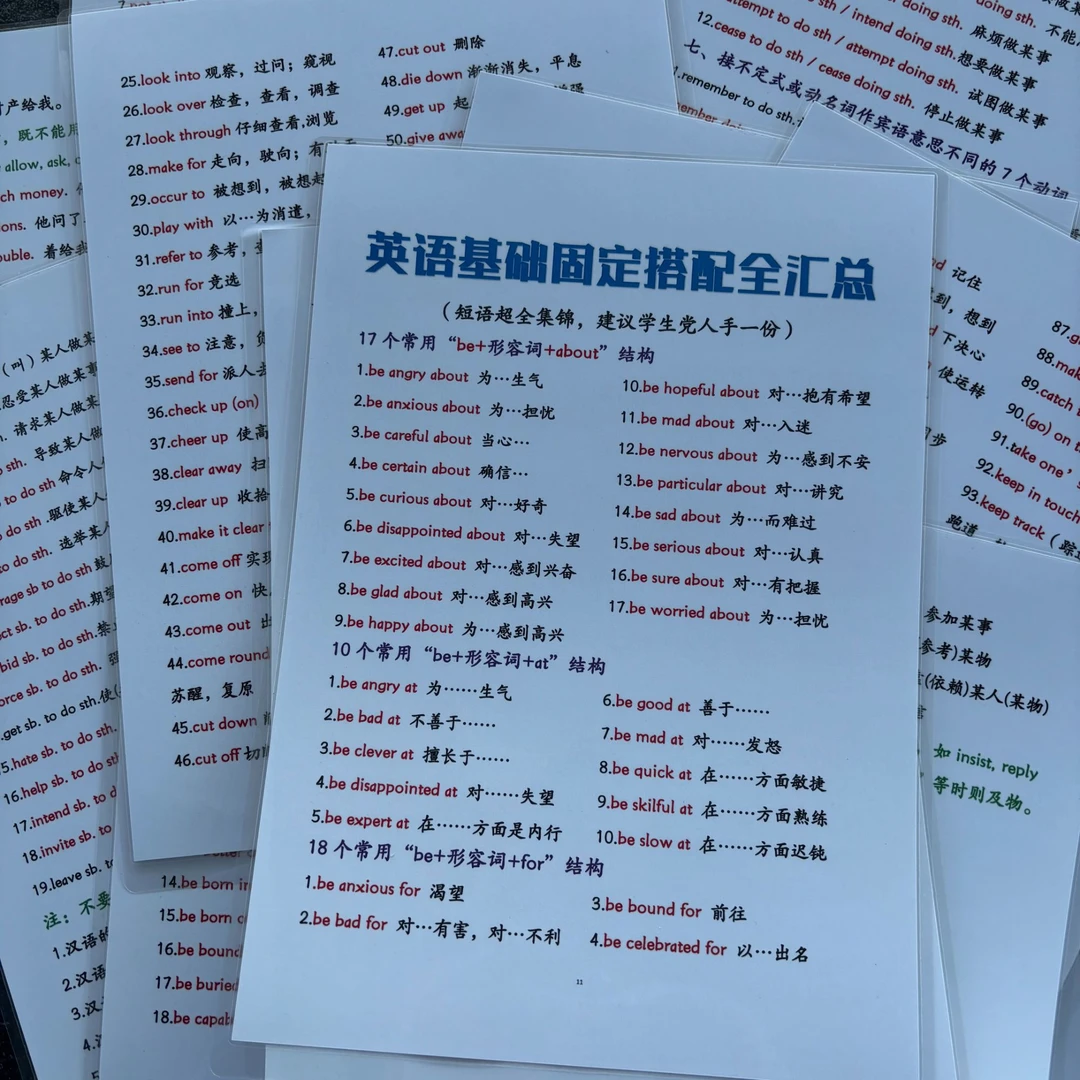 英语基础固定搭配全汇总
（短语超全集锦，建议学生党人手一份）
17个常用“be+形容词+about”结构
1.be angry about 为…生气
2.be anxious about 为…担忧
3.be careful about 当心…
4.be certain about 确信…
5.be curious about 对…好奇
6.be disappointed about 对…失望
7.be excited about 对…感到兴奋
8.be glad about 对…感到高兴
9.be happy about 为…感到高兴
10.be hopeful about 对…抱有希望
11.be mad about 对…入迷
12.be nervous about 为…感到不安
13.be particular about 对…讲究
14.be sad about 为…而难过
15.be serious about 对…认真
16.be sure about 对…有把握
17.be worried about 为…担忧
10个常用“be+形容词+at”结构
1.be angry at 为……生气
2.be bad at 不善于……
3.be clever at 擅长于……
4.be disappointed at 对……失望
5.be expert at 在……方面是内行
6.be good at 善于……
7.be mad at 对……发怒
8.be quick at 在……方面敏捷
9.be skilful at 在……方面熟练
10.be slow at 在……方面迟钝
18个常用“be+形容词+for”结构
1.be anxious for 渴望
2.be bad for 对…有害，对…不利
3.be bound for 前往
4.be celebrated for 以…出名
11
25.look into 观察，过问；窥视
26.look over 检查，查看，调查
27.look through 仔细查看,浏览
28.make for 走向，驶向；有
29.occur to 被想到，被想起
30.play with 以…为消遣，
31.refer to 参考，
32.run for 竞选
33.run into 撞上，
34.see to 注意，
35.send for 派人去
36.check up (on)
37.cheer up 使高
38.clear away 扫
39.clear up 收拾
40.make it clear
41.come off 实现
42.come on 快
43.come out 出
44.come round
苏醒，复原
45.cut down
46.cut off 切
47.cut out 删除
48.die down 渐渐消失，平息
49.get up 起
50.give away
12.cease to do sth / cease doing sth. 停止做某事
attempt to do sth / attempt doing sth. 试图做某事
sth / intend doing sth.想要做某事
doing sth. 麻烦做某事
七、接不定式或动名词作宾语意思不同的7个动词
remember to do sth.
记住
到，想到
下决心
使运转
88.mak
89.catch
90.(go) on
91.take one's
92.keep in touch
93.keep track（
跑道
参加某事
参考)某物
(依赖)某人(某物)
如 insist, reply
等时则及物。
产给我。
，既不能用
allow, ask,
ch money.
ions. 他问了
ouble. 着给我
（叫）某人做某
忍受某人做某事
请求某人做某
sth. 导致某人做
to do sth 命令人
do sth .驱使某人
to do sth. 选举某人
rage sb to do sth 鼓
ct sb. to do sth.期望
bid sb. to do sth.禁
orce sb. to do sth. 强
.get sb. to do sth.使
5.hate sb. to do sth.
16.help sb. to do sth
17.intend sb. to d
18.invite sb. to
19.leave sb. to
注：不要
1.汉语的
2.汉语
3.汉
4.
14.be born in
15.be born
16.be bound
17.be buried
18.be capab